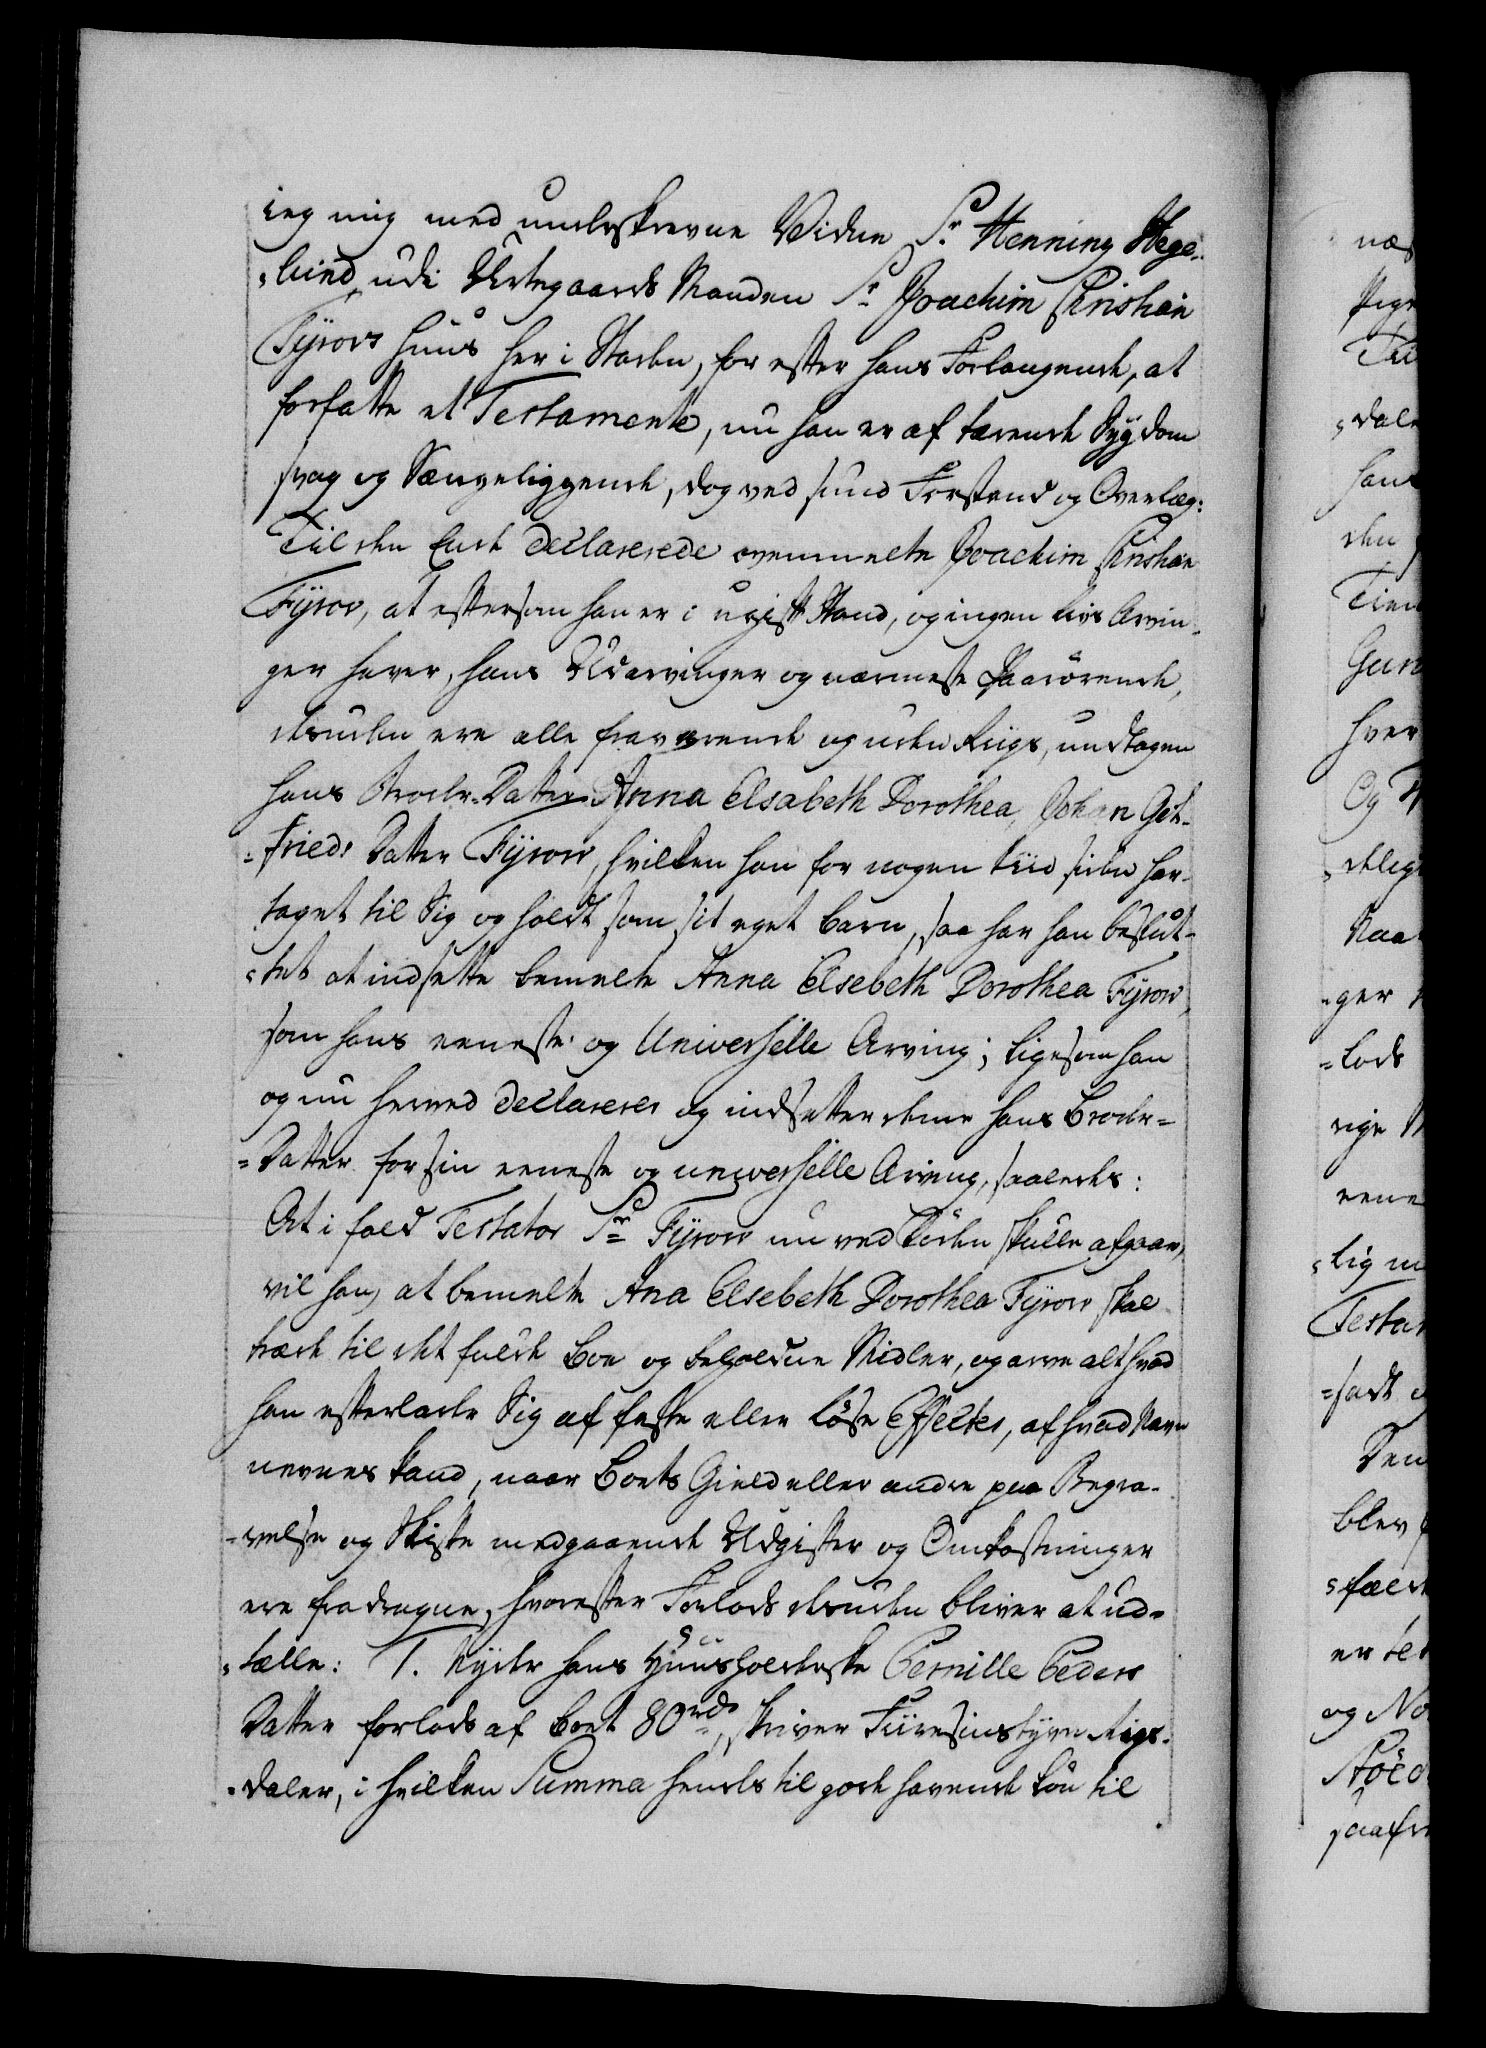 ieg mig med underskrevne Vidne Sr. Henning Hege-
-lund, udi Urtegaards Manden Sr. Joachim Christian
Fÿrows Huus her i Staden, for efter hans Forlangende, at
forfatte et Testamente, nu han er af tærende Sygdom
svag og Sængeliggende, dog ved sund Forstand og Overlæg:
Til den Ende declarerede ovenmelte Joachim Christian
Fÿrow, at eftersom han er i ugift Stand, og ingen Livs Arvin-
ger haver, hans Udarvinger og nærmeste Paarörende,
desuden ere alle fraværende og uden Riigs, undtagen
hans Broder-Datter Anna Elsabeth Dorothea, Johan Got-
-frieds Datter Fÿrow, hvilken han for nogen tiid siden har
taget til Sig og holdt som sit eget barn, saa har han beslut-
-tet at indsætte bemelte Anna Elsebeth Dorothea Fÿrow,
som hans eeneste og Universelle Arving; ligesom han
og nu herved declarerer og indsætter denne hans Broder-
-Datter for sin eeneste og universelle Arving, saaledes:
At i fald Testator Sr. Fÿrow nu ved Döden skulle afgaae,
vil han, at bemelte Ana Elsebeth Dorothea Fÿrow skal
træde til det fulde Boe og beholdne Midler, og arve alt hvad
han efterlader Sig af faste eller löse Effecter, af hvad Navn
nevnes kand, naar Boets Gield eller andre paa Begra-
-velse og Skifte medgaaende Udgifter og Omkostninger
ere fradragne, hvorefter Forlods desuden bliver at ud-
-tælle: 1. Nÿder hans Huusholderske Pernille Peders
Datter forlods af Boet 80 rdr, skriver Fiiresinstyve Rigs-
-daler, i hvilken Summa hendes til gode havende Lön til